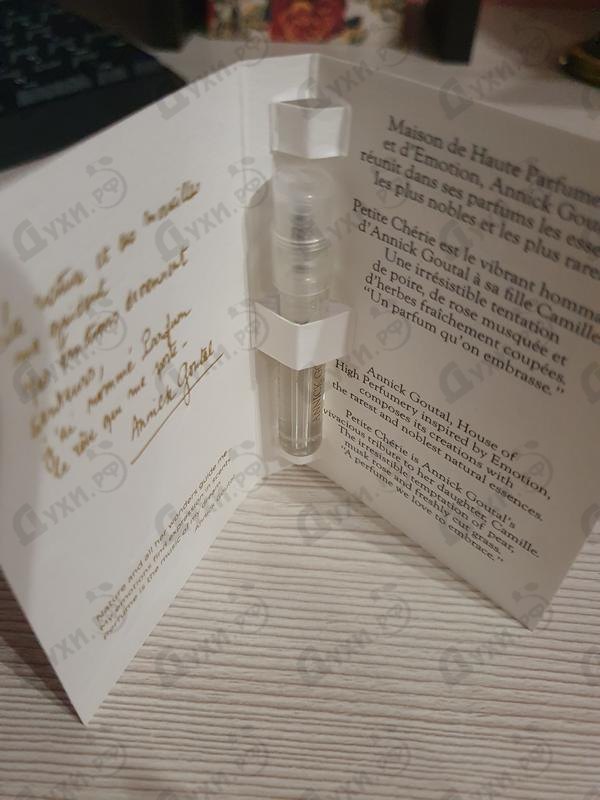 nature et ses merveilles
émotions
senteurs,
J'ai nommé Parfum
qui me
Annick Goutal
Nature and all her wonders guide me
My emotions find expression in scents
Perfume is the music of my dreams
Maison de Haute Parfume
et d'Emotion, Annick Gou
réunit dans ses parfums les esse
les plus nobles et les plus rare
Petite Chérie est le vibrant homma
d'Annick Goutal à sa fille Camille
Une irrésistible tentation
de poire, de rose musquée et
d'herbes fraîchement coupées.
"Un parfum qu'on embrasse."
Annick Goutal, House of
High Perfumery inspired by Emotion,
composes its creations with
the rarest and noblest natural essences.
Petite Chérie is Annick Goutal's
vivacious tribute to her daughter, Camille.
The irresistible temptation of pear,
musk rose and freshly cut grass.
"A perfume we love to embrace."
ANNICK GO
Духи.рф